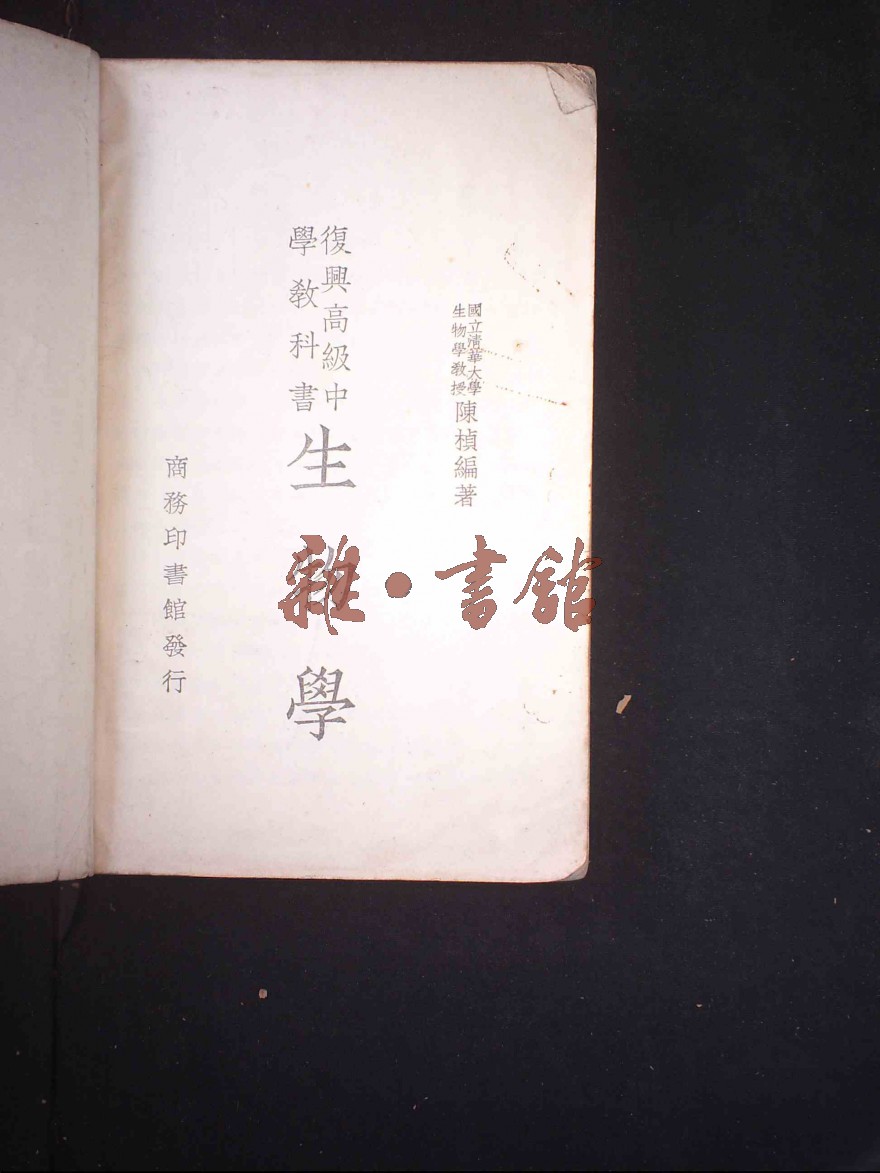 國立清華大學
生物學教授
陳楨編著
復興高級中
學教科書
生物學
商務印書館發行
雜·書館